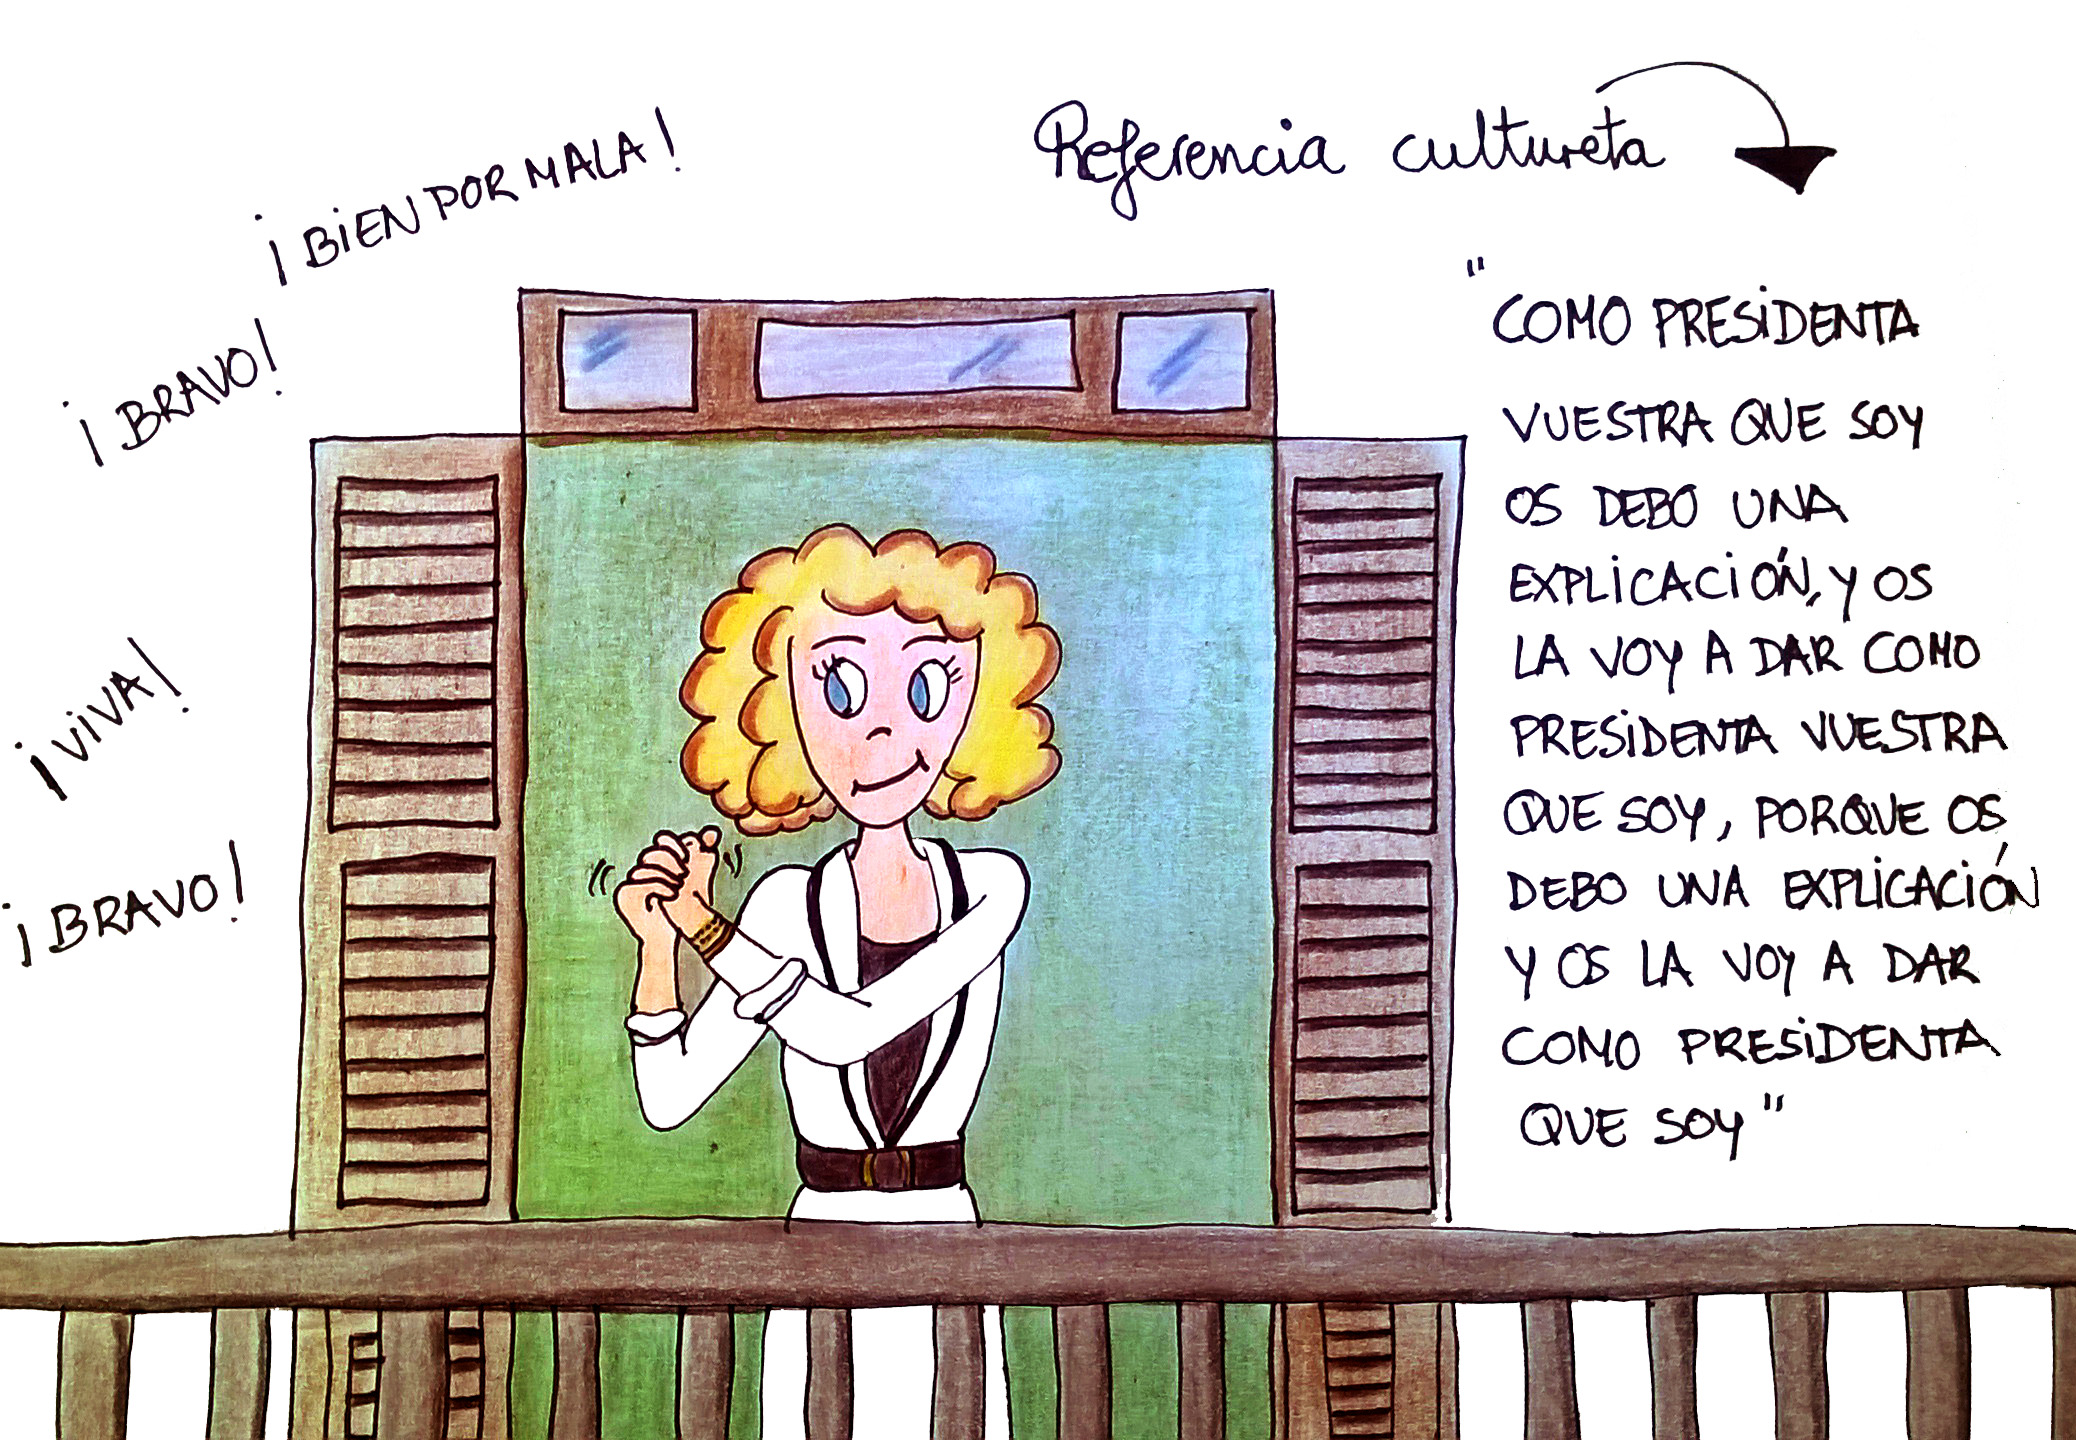 ¡BIEN POR MALA!
¡BRAVO!
¡VIVA!
¡BRAVO!
Referencia cultureta
"COMO PRESIDENTA
VUESTRA QUE SOY
OS DEBO UNA
EXPLICACIÓN, Y OS
LA VOY A DAR COMO
PRESIDENTA VUESTRA
QUE SOY, PORQUE OS
DEBO UNA EXPLICACIÓN
Y OS LA VOY A DAR
COMO PRESIDENTA
QUE SOY"